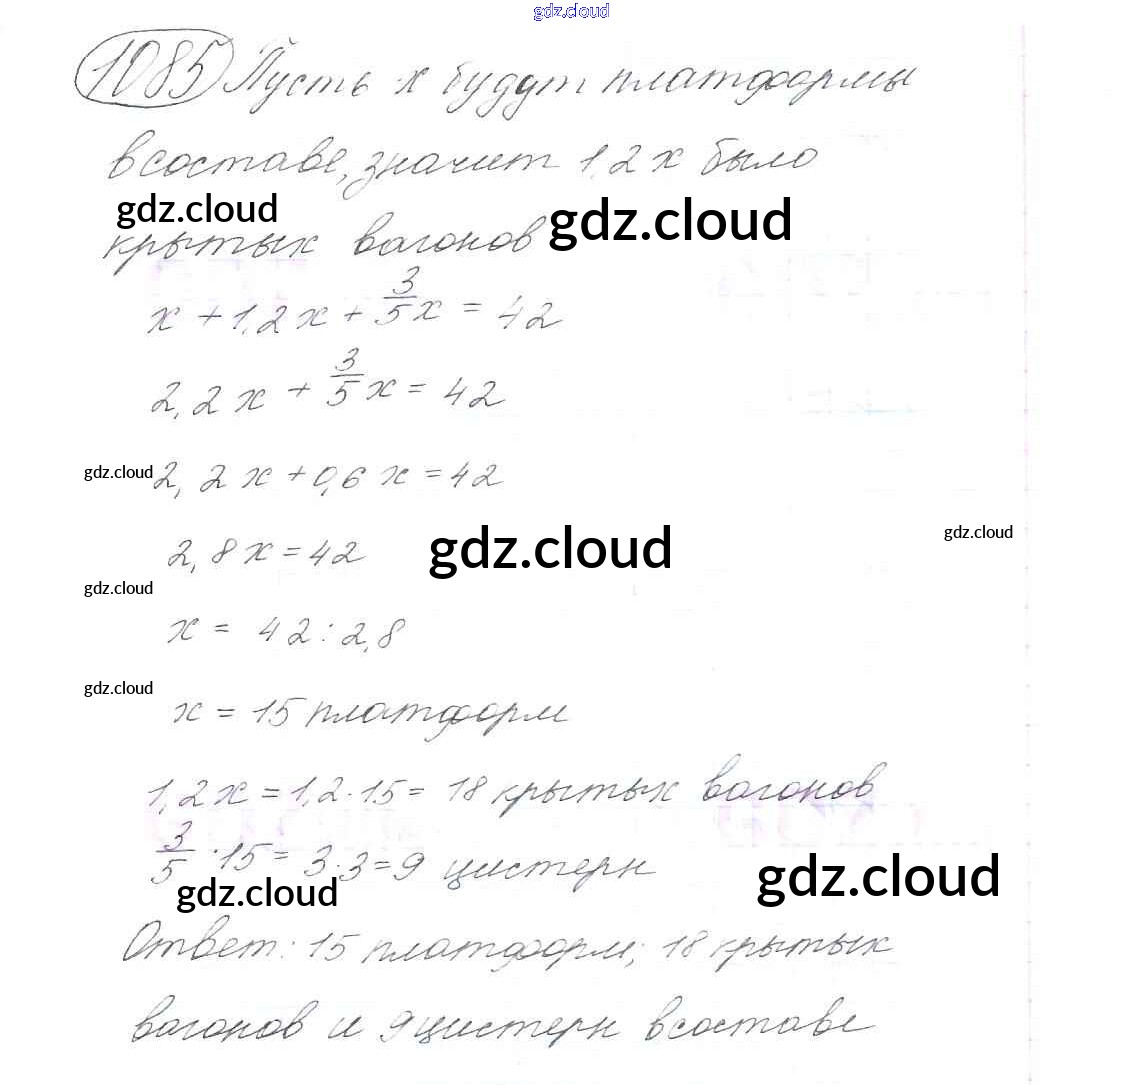 gdz.cloud
1085 Пусть x будут платформы
в составе, значит 1,2 x было
gdz.cloud
gdz.cloud
крытых вагонов
x + 1,2 x + 3/5 x = 42
2,2 x + 3/5 x = 42
gdz.cloud
2,2 x + 0,6 x = 42
gdz.cloud
2,8 x = 42
gdz.cloud
gdz.cloud
x = 42 : 2,8
gdz.cloud
x = 15 платформ
1,2 x = 1,2 · 15 = 18 крытых вагонов
3/5 · 15 = 3 · 3 = 9 цистерн
gdz.cloud
gdz.cloud
Ответ: 15 платформ; 18 крытых
вагонов и 9 цистерн в составе